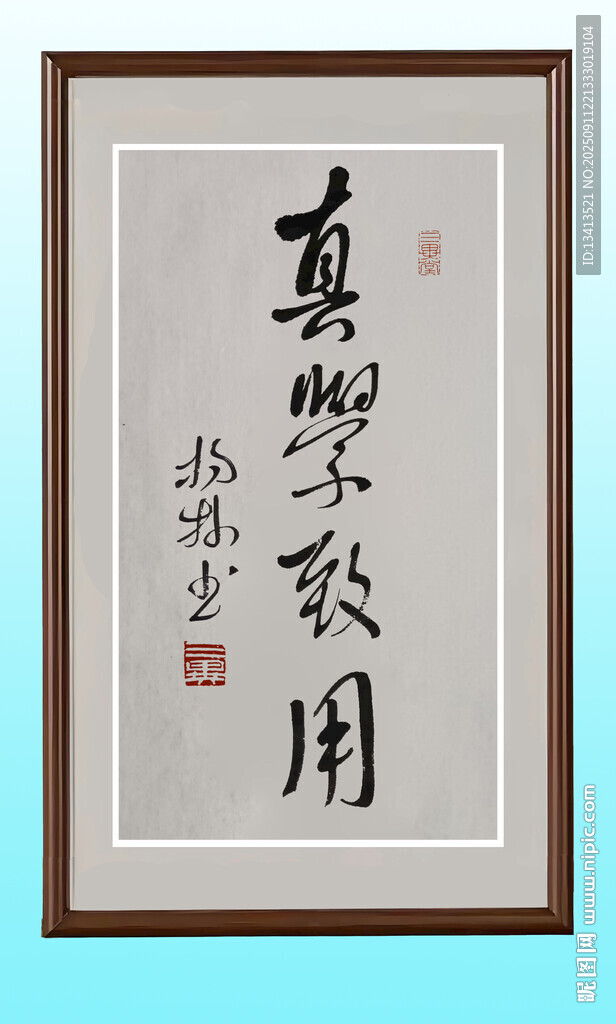 真學致用
杨林书
ID:13413521 NO:20250911221333019104
昵图网 www.nipic.com